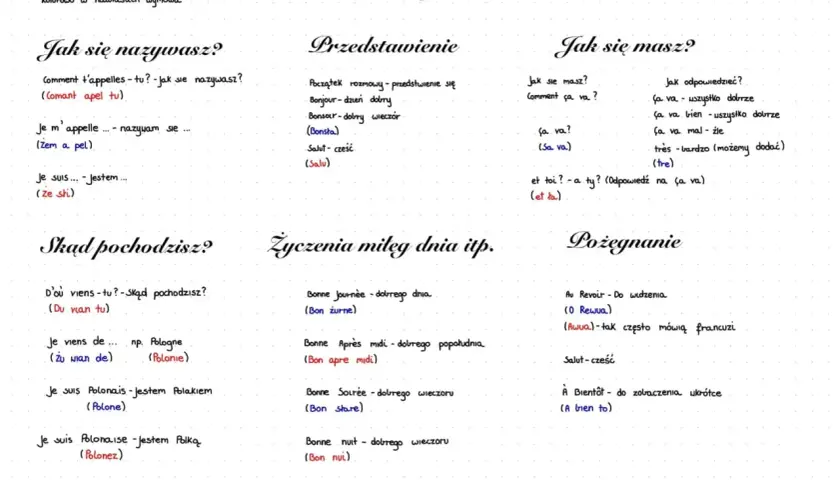 Jak się nazywasz?
Comment t'appelles - tu? - jak sie nazywasz?
(Comant apel tu)
Je m'appelle ... - nazywam sie ...
(żem a pel)
Je suis... - jestem ...
(że słi)
Przedstawienie
Początek rozmowy - przedstawienie się
Bonjour - dzień dobry
Bonsoir - dobry wieczór
(Bonsła)
Salut - cześć
(Salu)
Jak się masz?
Jak sie masz?
Comment ça va ?
ça va?
(Sa va)
Jak odpowiedzieć?
Ça va - wszystko dobrze
Ça va bien - wszystko dobrze
Ça va mal - źle
très - bardzo (możemy dodać)
(tre)
et toi? - a ty? (Odpowiedź na ça va)
(et ła)
Skąd pochodzisz?
D'où viens - tu? - Skąd pochodzisz?
(Du vian tu)
Je viens de ... np. Pologne
(żu wian de) (Polonie)
Je suis Polonais - jestem Polakiem
(Polone)
Je suis Polonaise - jestem Polką
(Polonez)
Życzenia miłęg dnia itp.
Bonne Journèe - dobrego dnia
(Bon żurne)
Bonne Après midi - dobrego popołudnia
(Bon apre midi)
Bonne Soirée - dobrego wieczoru
(Bon słare)
Bonne nuit - dobrego wieczoru
(Bon nui)
Pożegnanie
Au Revoir - Do widzenia
(O Rewua)
(Awua) - tak często mówią francuzi
Salut - cześć
À Bientôt - do zobaczenia wkrótce
(A bien to)